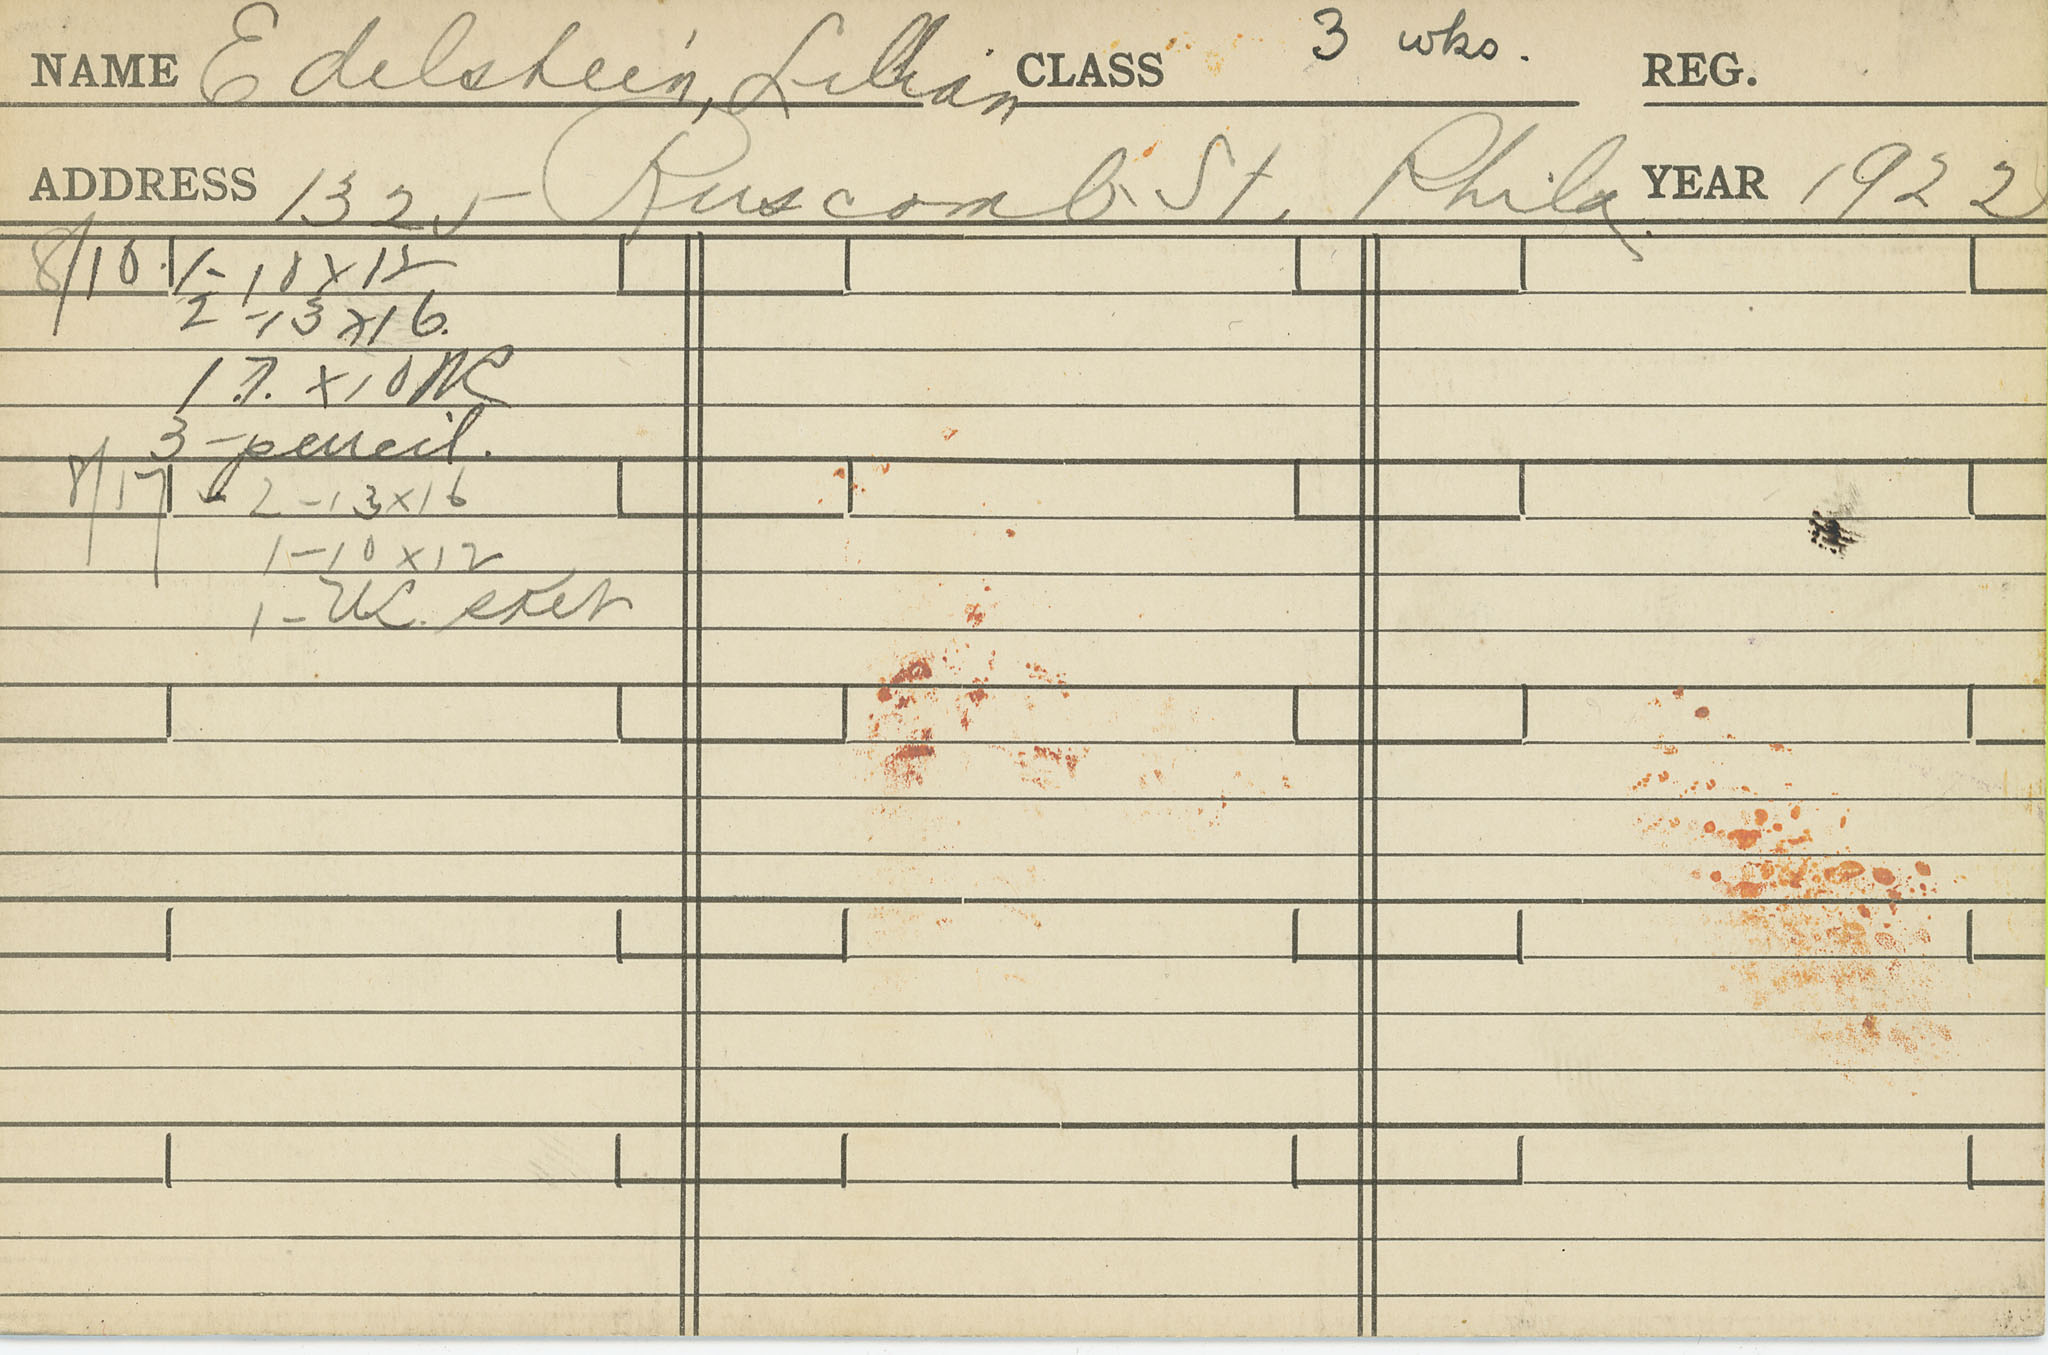 NAME Edelstein, Lillian CLASS 3 wks. REG.
ADDRESS 1325 Ruscomb St. Phila. YEAR 1922
8/10. 1-10x12
2-13x16.
1 7. x10 WC
3-pencil.
8/17 - 2-13x16
1-10x12
1-WC. sket